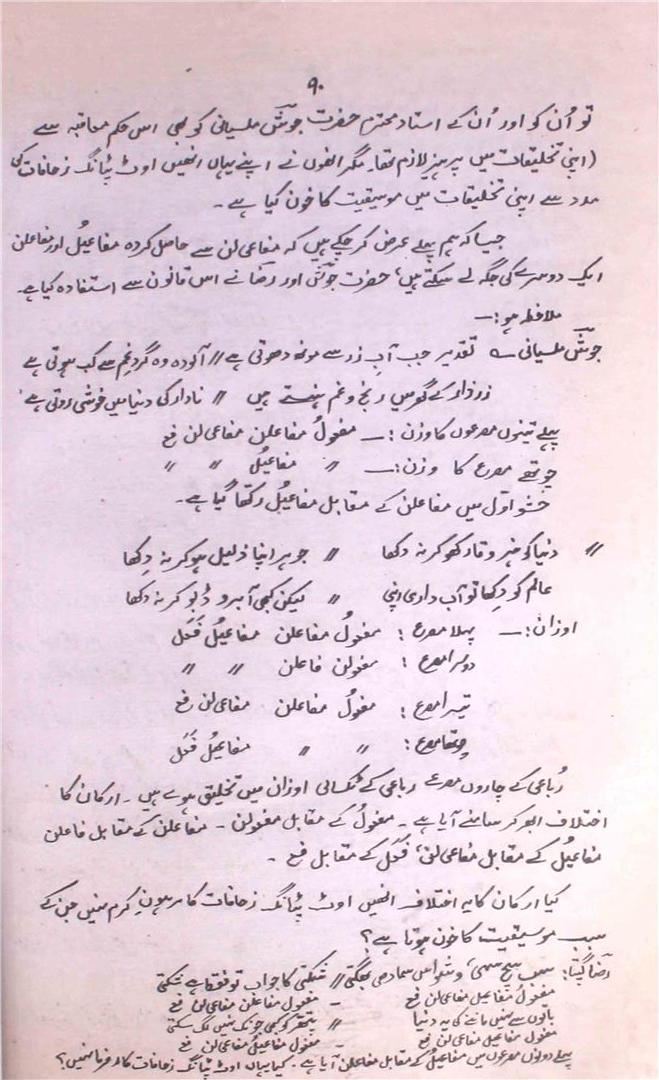 ۹۰
تو اُن کو اور اُن کے استاد محترم حضرت جوشؔ ملسیانی کو بھی اس حکم معاقبہ سے
(اپنی تخلیقات میں پرہیز لازم تھا۔ مگر انھوں نے اپنے یہاں انھیں اوٹ پٹانگ زحافات کی
مدد سے اپنی تخلیقات میں موسیقیت کا خون کیا ہے۔
جیسا کہ ہم پہلے عرض کر چکے ہیں کہ مفاعی لن سے حاصل کردہ مفاعیلُ اور مفاعلن
ایک دوسرے کی جگہ لے سکتے ہیں، حضرت جوشؔ اور رضاؔ نے اس قانون سے استفادہ کیا ہے۔
ملاحظہ ہو:۔
جوشؔ ملسیانی ؎ تقدیر جب آبِ زر سے مونھ دھوتی ہے // آلودہ وہ گردِ غم سے کب ہوتی ہے
زردار کے گھر میں رنج و غم ہنستے ہیں // نادار کی دنیا میں خوشی روتی ہے
پہلے تینوں مصرعوں کا وزن:۔ مفعولُ مفاعلن مفاعی لن فع
چوتھے مصرع کا وزن:۔ // مفاعیلُ // //
حشو اوّل میں مفاعلن کے مقابل مفاعیلُ رکھا گیا ہے۔
// دنیا کو ہنر وقار کھو کر نہ دکھا // جوہر اپنا ذلیل ہو کر نہ دِکھا
عالم کو دِکھا تو آب داری اپنی // لیکن کبھی آبرو ڈبو کر نہ دکھا
اوزان:۔ پہلا مصرع: مفعولُ مفاعلن مفاعیلُ فَعَل
دوسرا مصرع: مفعولن فاعلن // //
تیسرا مصرع: مفعولُ مفاعلن مفاعی لن فع
چوتھا مصرع: // // مفاعیلُ فَعَل
رُباعی کے چاروں مصرعے رباعی کے ٹکسالی اوزان میں تخلیق ہوے ہیں۔ ارکان کا
اختلاف ابھر کر سامنے آیا ہے۔ مفعولُ کے مقابل مفعولن۔ مفاعلن کے مقابل فاعلن
مفاعیلُ کے مقابل مفاعی لن، فَعَل کے مقابل فع۔
کیا ارکان کا یہ اختلاف انھیں اوٹ پٹانگ زحافات کا مرہونِ کرم نہیں جن کے
سبب موسیقیت کا خون ہوتا ہے؟
رضاؔ گپتا: سبھی، وشواس سمادھی بھگتی // شکتی کا جواب تو فقط ہے شکتی
مفعولُ مفاعیلُ مفاعی لن فع - مفعولُ مفاعلن مفاعی لن فع
باتوں سے نہیں ماننے کی یہ دنیا // پتھر کو کبھی جونک نہیں لگ سکتی
مفعولُ مفاعیلُ مفاعی لن فع - مفعولُ مفاعیلُ مفاعی لن فع
پہلے دونوں مصرعوں میں مفاعیلُ کے مقابل مفاعلن آیا ہے۔ کیا یہاں اوٹ پٹانگ زحافات کارفرما نہیں؟